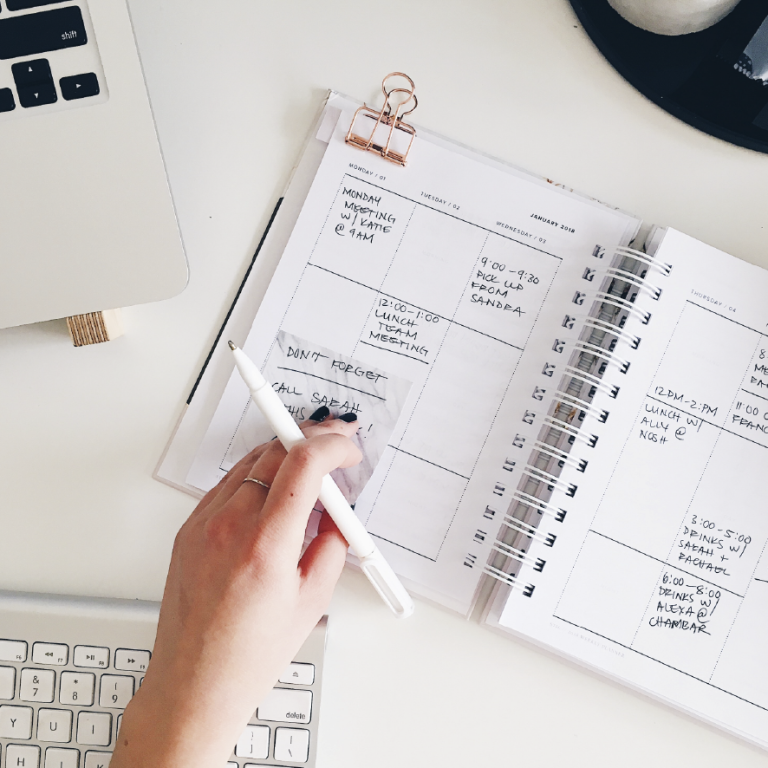 shift
MONDAY / 01
TUESDAY / 02
WEDNESDAY / 03
JANUARY 2018
MONDAY
MEETING
W/ KATIE
@ 9AM
9:00 - 9:30
PICK UP
FROM
SANDRA
12:00-1:00
LUNCH
TEAM
MEETING
DON'T FORGET
CALL SARAH
THURSDAY / 04
12PM-2:PM
LUNCH W/
ALLY @
NOSH
3:00-5:00
DRINKS W/
SARAH +
RACHAEL
6:00-8:00
DRINKS W/
ALEXA @
CHAMBAR
& 7
* 8
( 9
Y U I
H
delete